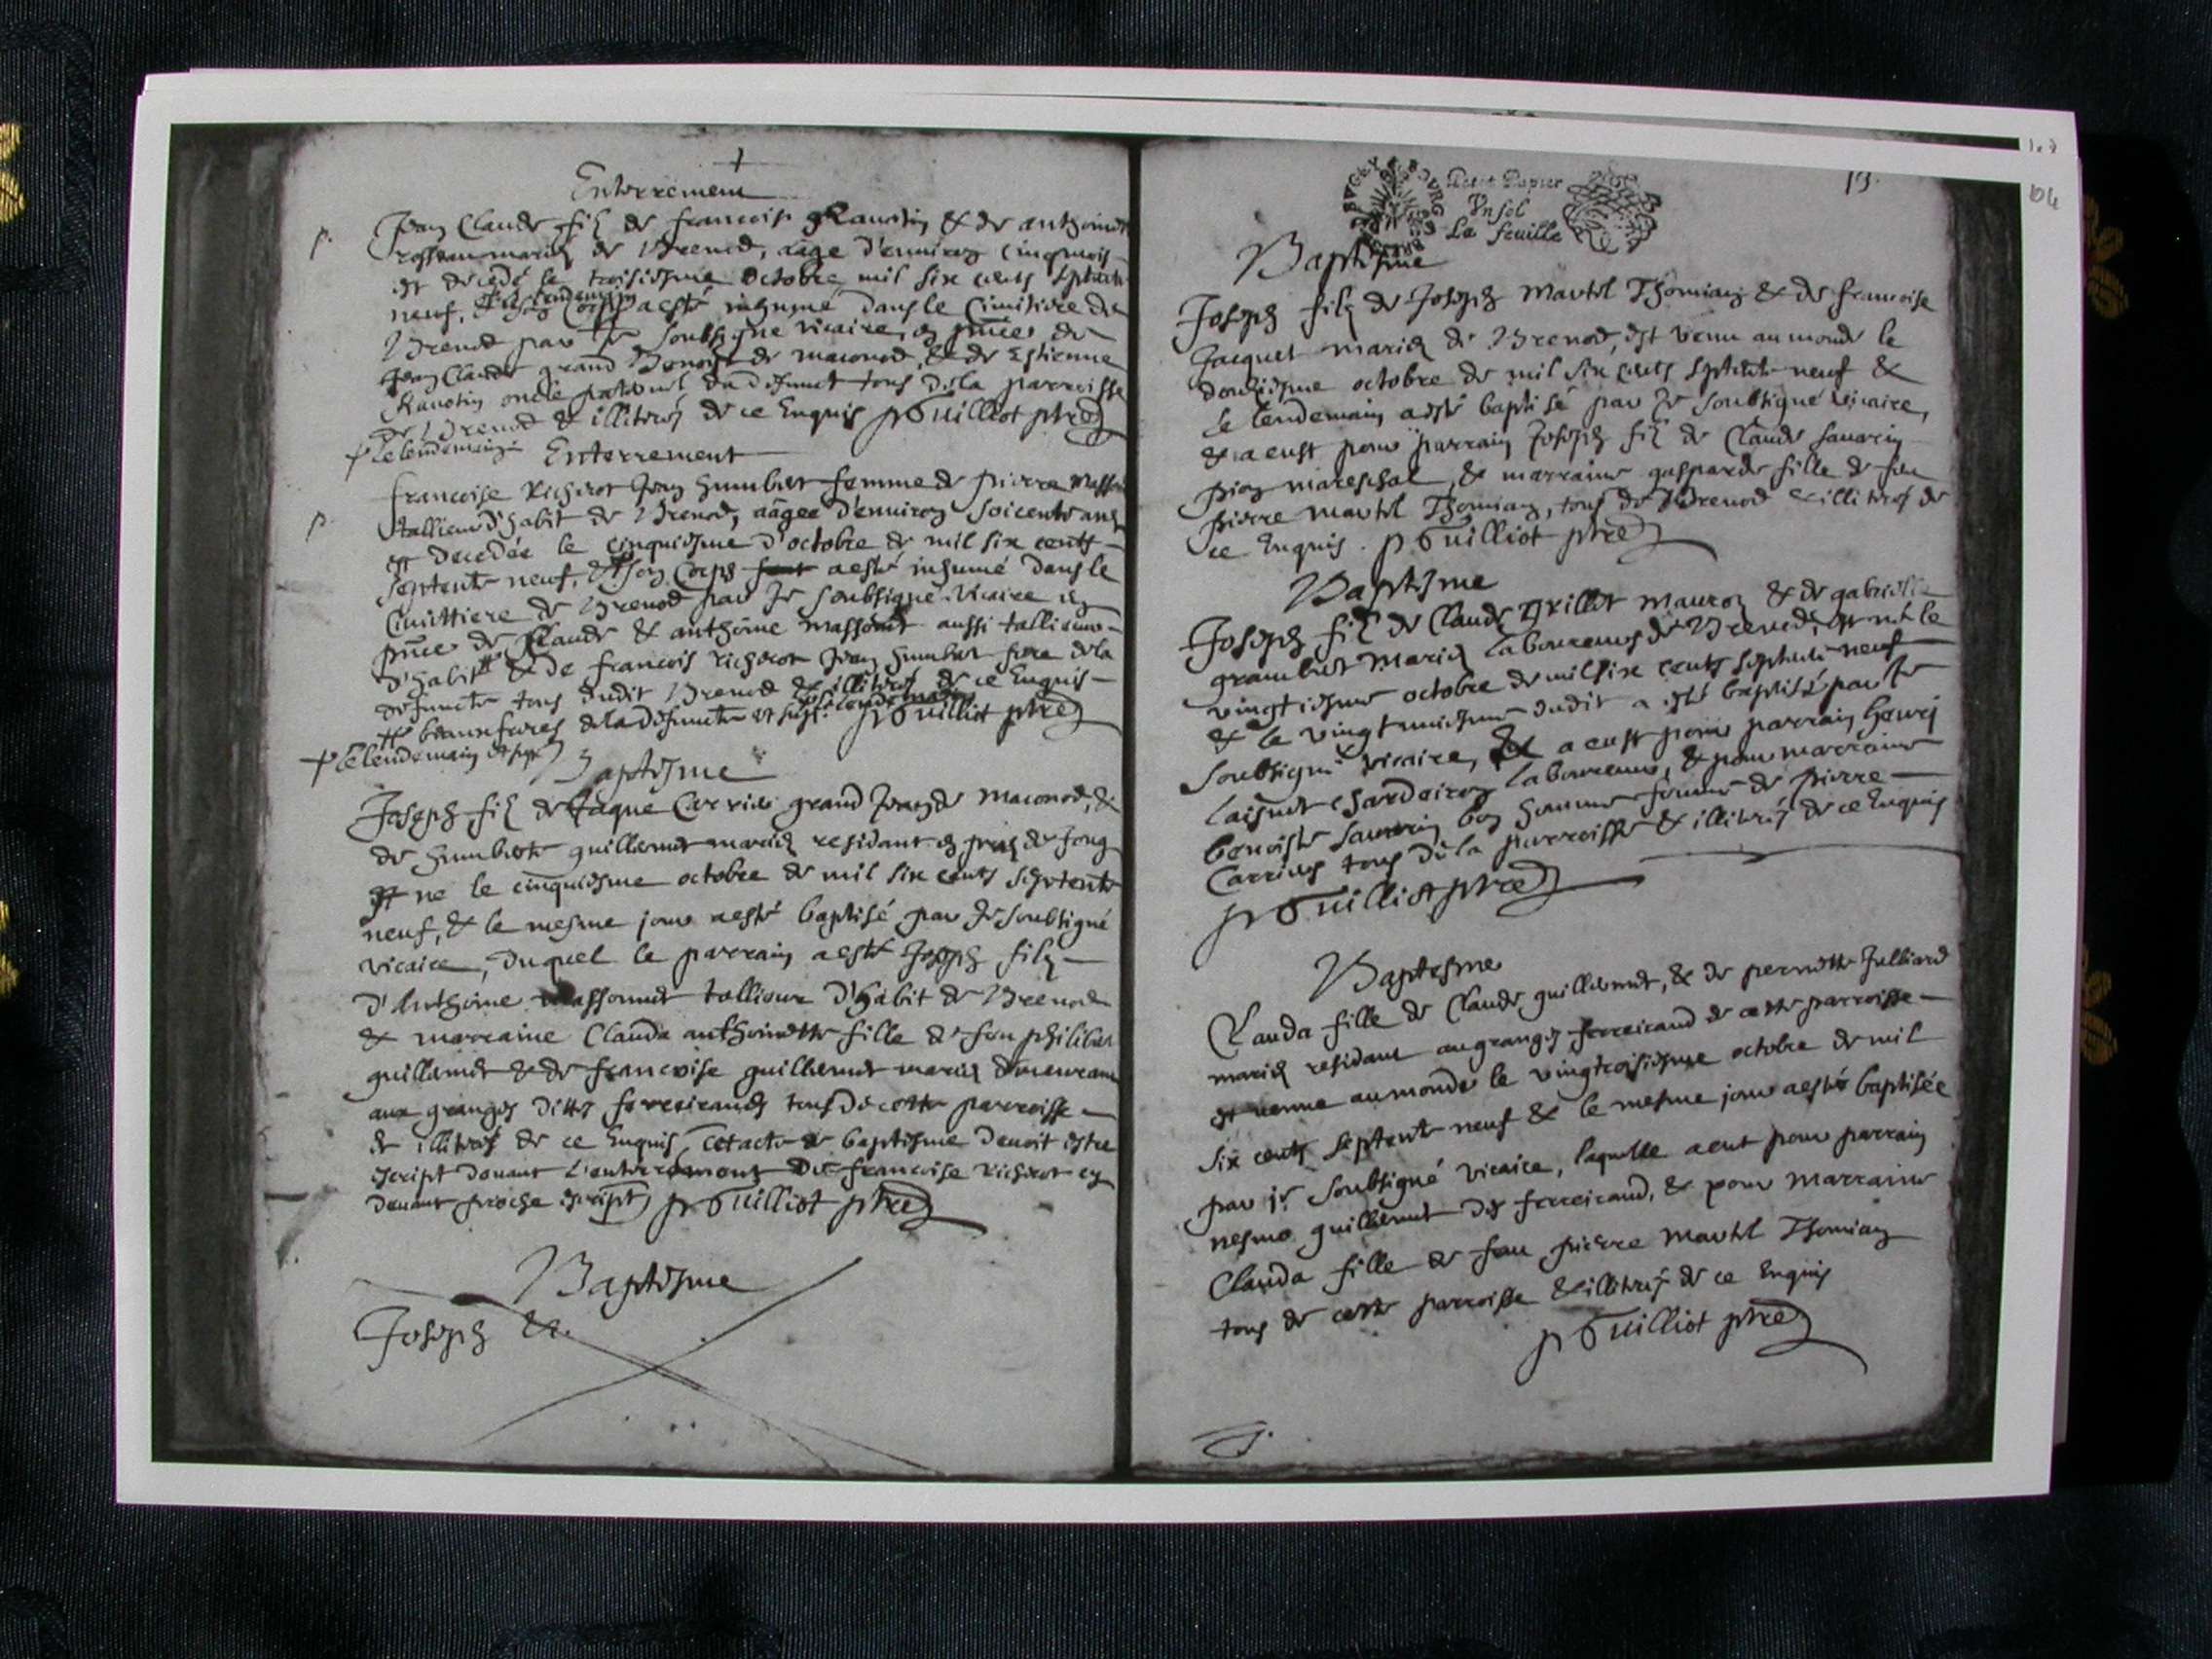 Enterrement
Jean Claude fil de francois Rauotin & de anthoine
mariez de Brenod, aage d'enuiron cinq mois
est decedé le troisiesme octobre mil six cents septente
neuf, & son corps a esté inhumé dans le Cimitiere de
Brenod par Je soubsigne vicaire, en pñce de
Jean Claude grand Benoist de maconod, & de Estienne
Rauotin oncle paternel du defunct tous de la parroisse
de Brenod & illitrés de ce Enquis p Guilliot ptre
+ le lendemain
Enterrement
francoise Richerot Jean humbert femme de pierre
tallieur d'habit de Brenod, aagée d'enuiron soicente ans
est decedée le cinquiesme d'octobre de mil six cents
septente neuf, & son corps a esté inhumé dans le
Cimittiere de Brenod par Je soubsigné vicaire en
pñce de Claude & anthoine massonnet aussi tallieurs
d'habit & de francois Richerot Jean humbert frere de la
defuncte tous dudit Brenod & illitres de ce Enquis
beauxfreres de la defuncte p Guilliot ptre
+ le lendemain
Baptesme
Joseph fil de Jaque Carrier grand Jean de maconod, &
de humberte guillermet mariez residant en
est né le cinquiesme octobre de mil six cents septente
neuf, & le mesme jour a esté baptisé par Je soubsigné
vicaire, duquel le parrain a esté Joseph filz
d'Anthoine massonnet tallieur d'habit de Brenod
& marraine Clauda anthoinette fille de feu philibert
guillermet & de francoise guillermet mariez
aux granges dittes ferreirandes tous de cette parroisse
& illitrés de ce Enquis, cet acte de baptesme deuoit estre
escript deuant l'enterrement de francoise Richerot cy
deuant proche escript p Guilliot ptre
Baptesme
Joseph &.
13.
BVGEY BOVRG
Petit Papier
Vn sol
La feuille
Baptesme
Joseph filz de Joseph Martel Thomian & de francoise
Jacquet mariez de Brenod, est venu au monde le
douziesme octobre de mil six cents septente neuf &
le lendemain a esté baptisé par Je soubsigné vicaire,
& a eust pour parrain Joseph fil de Claude sauarin
pion mareschal, & marraine gasparde fille de feu
pierre Martel Thomian, tous de Brenod & illitrés de
ce Enquis. p Guilliot ptre
Baptesme
Joseph fil de Claude Grillet mauron & de gabrielle
grambert mariez laboureurs de Brenod, est né le
vingtiesme octobre de mil six cents septente neuf
& le vingtuniesme dudit a esté baptisé par Je
soubsigné vicaire, a eust pour parrain henri
laisnet chardeiron laboureur, & pour marraine
benoiste sauarin bon homme femme de pierre
Carrier tous de la parroisse & illitrés de ce Enquis
p Guilliot ptre
Baptesme
Clauda fille de Claude guillermet, & de pernette Julliard
mariez residant au granges ferreirand de cette parroisse
est venue au monde le vingtroisiesme octobre de mil
six cents septente neuf & le mesme jour a esté baptisée
par je soubsigné vicaire, laquelle a eut pour parrain
nesme guillermet des ferreirand, & pour marraine
Clauda fille de feu pierre Martel Thomian
tous de cette parroisse & illitrés de ce Enquis
p Guilliot ptre